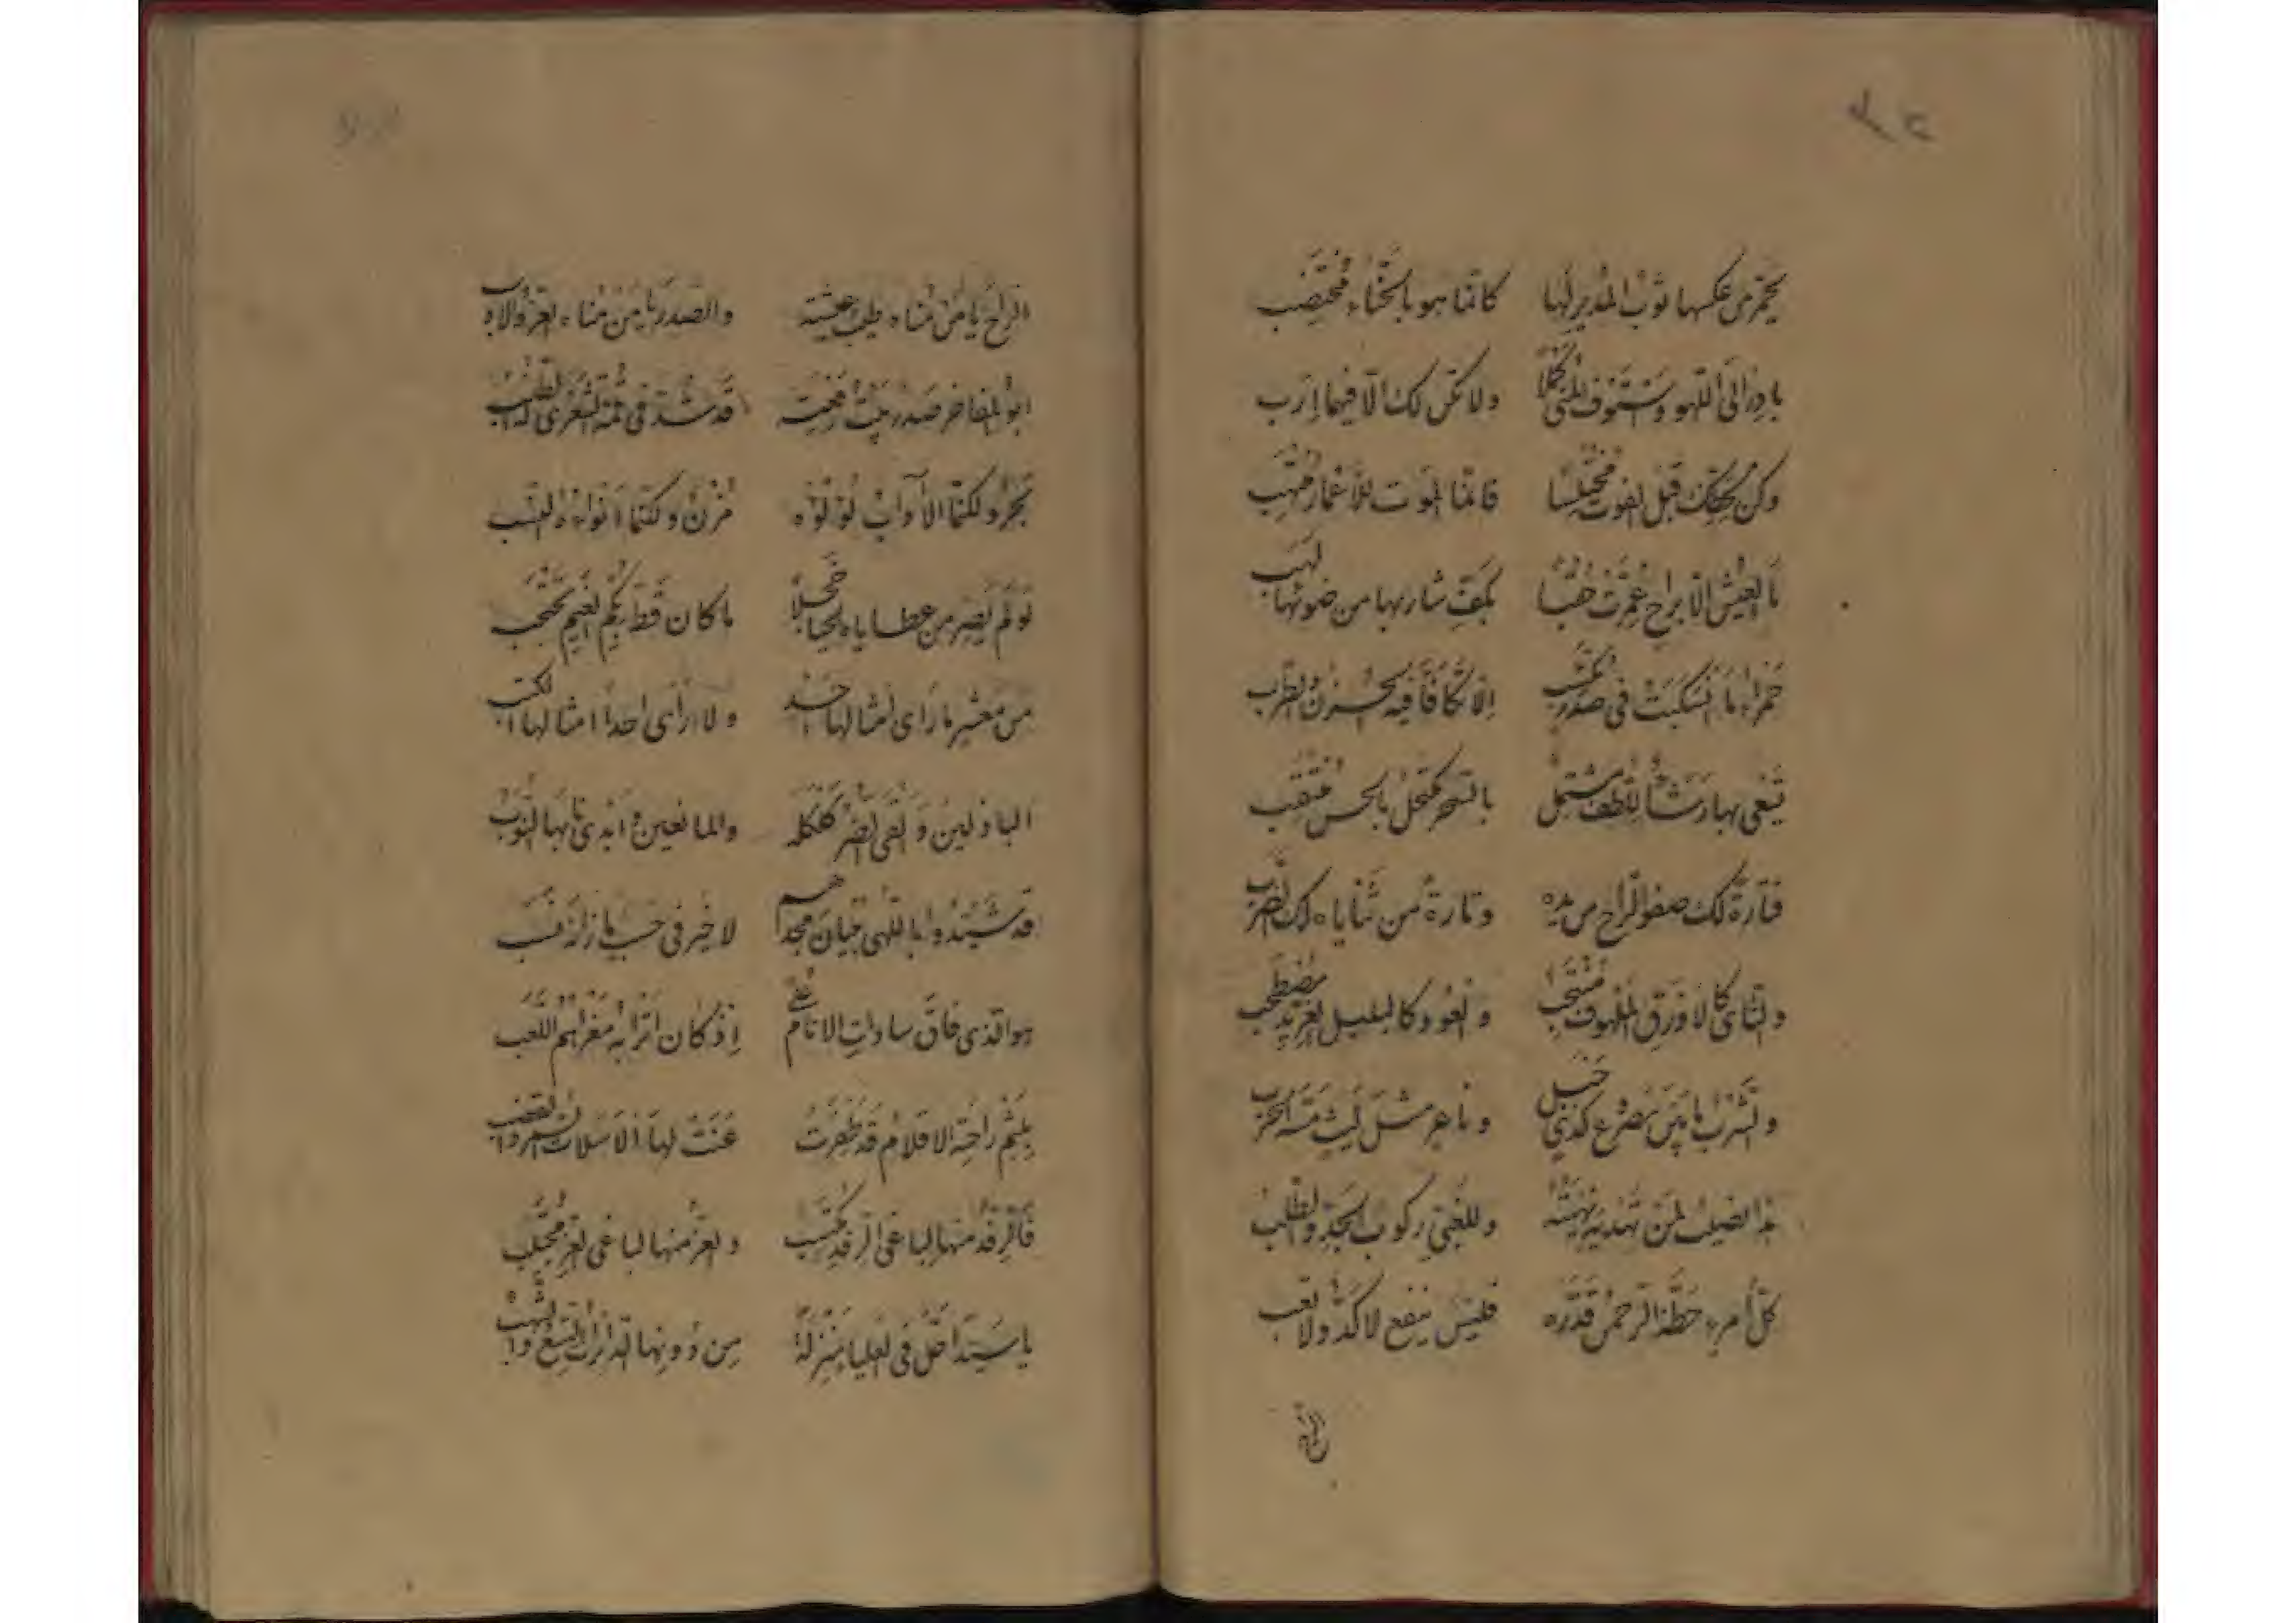 يحمّر من عكسها ثوب المدير لها كانما هو بالحنّاء مختضب
بادر الى اللهو واستوف المنى كملا ولا تكن لك الّا فيها ارب
وكن بحظك قبل الفوت مختلسا فانما الموت للأعمار منتهب
ما العيش الّا براح عمّرت حقبا بكفّ شاربها من ضوئها لهب
حمراء ما انسكبت فى صدر مكتئب الّا تكافأ فيه الحزن والطرب
تسعى بها رشأ للّطف مشتمل بالسحر مكتحل بالحسن منتقب
فتارة لك صفو الراح من يده وتارة من ثناياه لك الضرب
والناى كالاورق الملهوف منتحب والعود كالبلبل الغرّيد مصطخب
والشرب ما بين مصروع كذى خبل وناعر مثل ليث مسّه الحرب
هذا نصيب لمن تهديه نهيته وللغبىّ ركوب الجدّ والطلب
كلّ امرء حظّه الرحمن قدّره فليس ينفع لا كدّ ولا تعب
الراح يا من مناه طيب عيشته والصدر يا من مناه العزّ والادب
ابو المفاخر صدر بيت رفعته قد شدّ فى قمّة الشعرى له الطنب
بحر ولكنّما الآداب لؤلؤه مزن ولكنّما انواءه النشب
لو لم يصر من عطاياه الحيا خجلا ما كان قط بكم الغيم يحتجب
من معشر ما رأى امثالها احد ولا رأى احدا امثالها الكتب
الباذلين والقى الضرّ كلكله والمانعين وابدى نابها النوب
قد شيّدوا باللهى بنيان مجدهم لا خير فى حسب ما زانه نشب
هو الذى فاق سادات الانام على اذ كان اترابه مغزاهم اللعب
بلثم راحته الاقلام قد ظفرت عنت لها الاسلات السمر والقضب
فالرفد منها لباغى الرفد مكتسب والعزّ منها لباغى العزّ مجتلب
يا سيّدا حلّ فى العليا بمنزلة من دونها الدائرات السبع والشهب